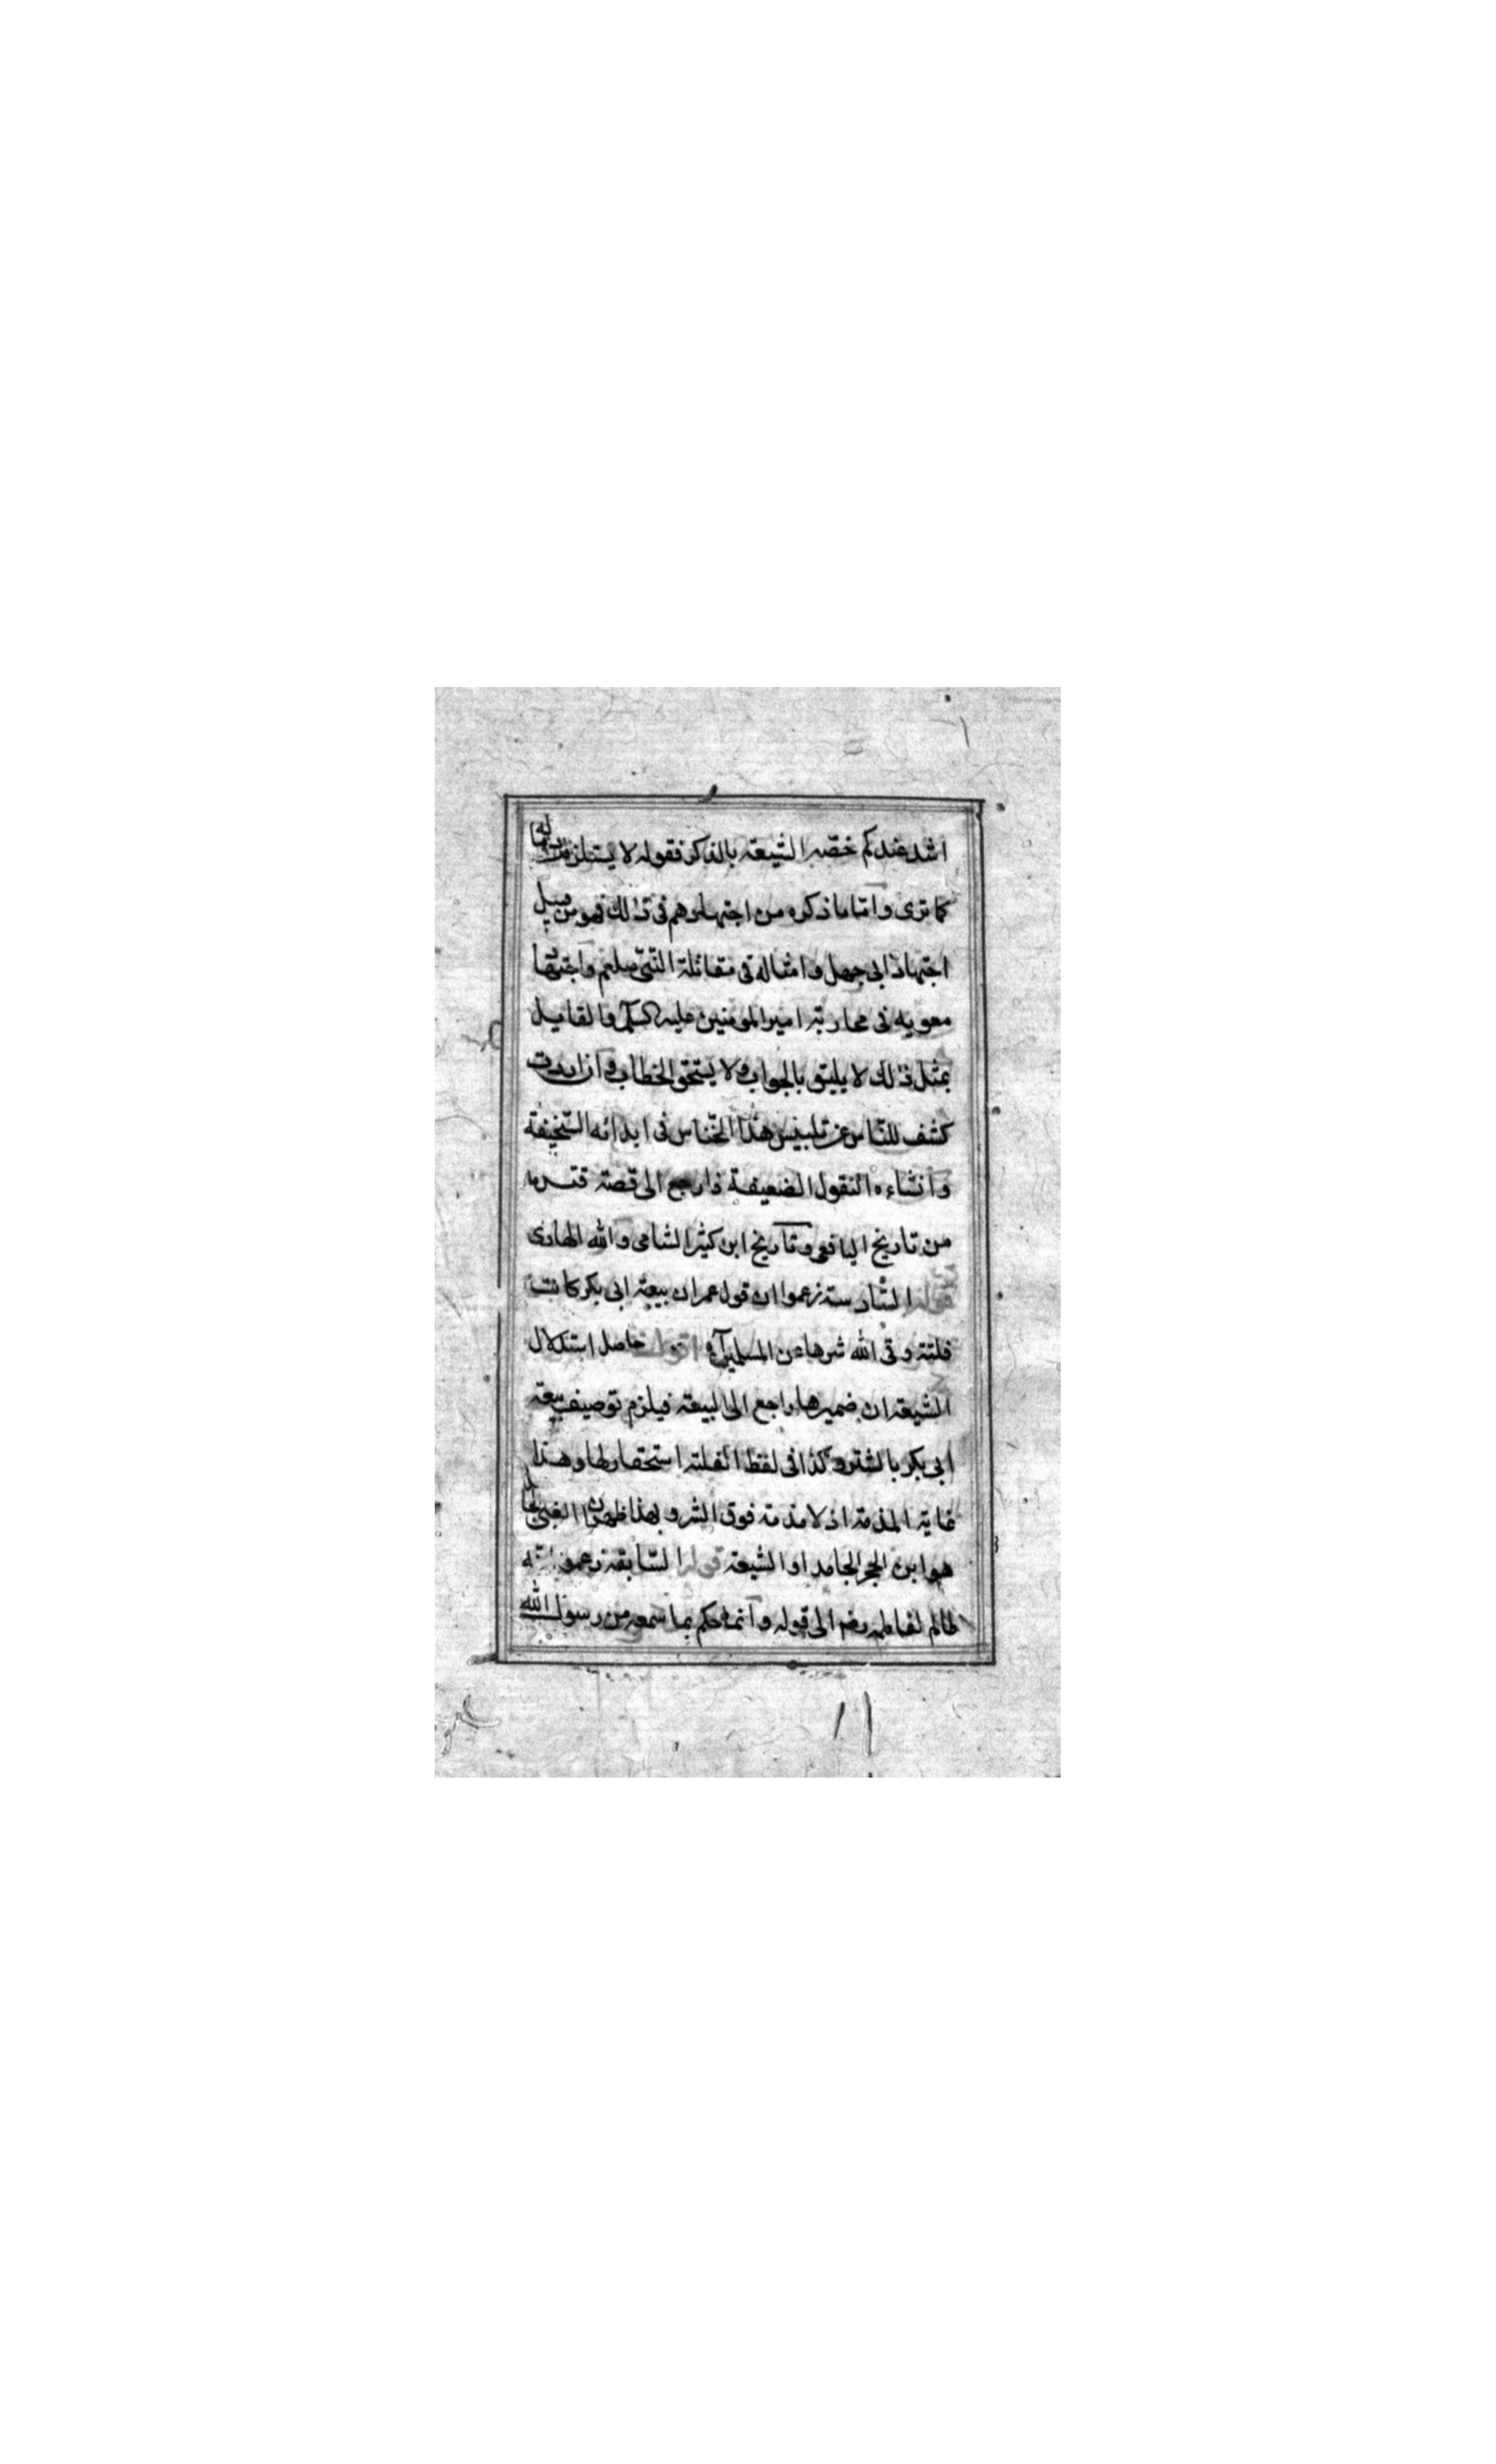 اشد عندكم خصّه الشيعة بالذكر فقوله لا يستلزم
كما ترى واما ما ذكره من اجتهادهم فى ذلك فهو من قبيل
اجتهاد ابى جهل وامثاله فى مقاتلة النّبىّ صلعم واجتهاد
معويه فى محاربة امير المومنين عليه السلام والقايل
بمثل ذلك لا يليق بالجواب ولا يستحق الخطاب وان اردت
كشف للنّاس عن تلبيس هذا الخنّاس فى ابدائه السّخيفة
وانشاءه النقول الضعيفة فارجع الى قصة قتـ
من تاريخ اليافعى وتاريخ ابن كثير الشامى والله الهادى
قوله السّادسة زعموا ان قول عمر ان بيعة ابى بكر كانت
فلتة وقى الله شرها عن المسلمين آه اقول حاصل استدلال
الشيعة ان ضميرها راجع الى البيعة فيلزم توصيف بيعة
ابى بكر بالشتر وكذا فى لفظ الفلتة استحقار لها وهذا
غاية المذمة اذ لا مذمة فوق الشر وبهذا ظهر ان الغبى
هو ابن الحجر الجامد او الشيعة قوله السّابعة زعموا انه
ظالم لفاطمه رضى الى قوله وانما حكم بما سمعه من رسول الله